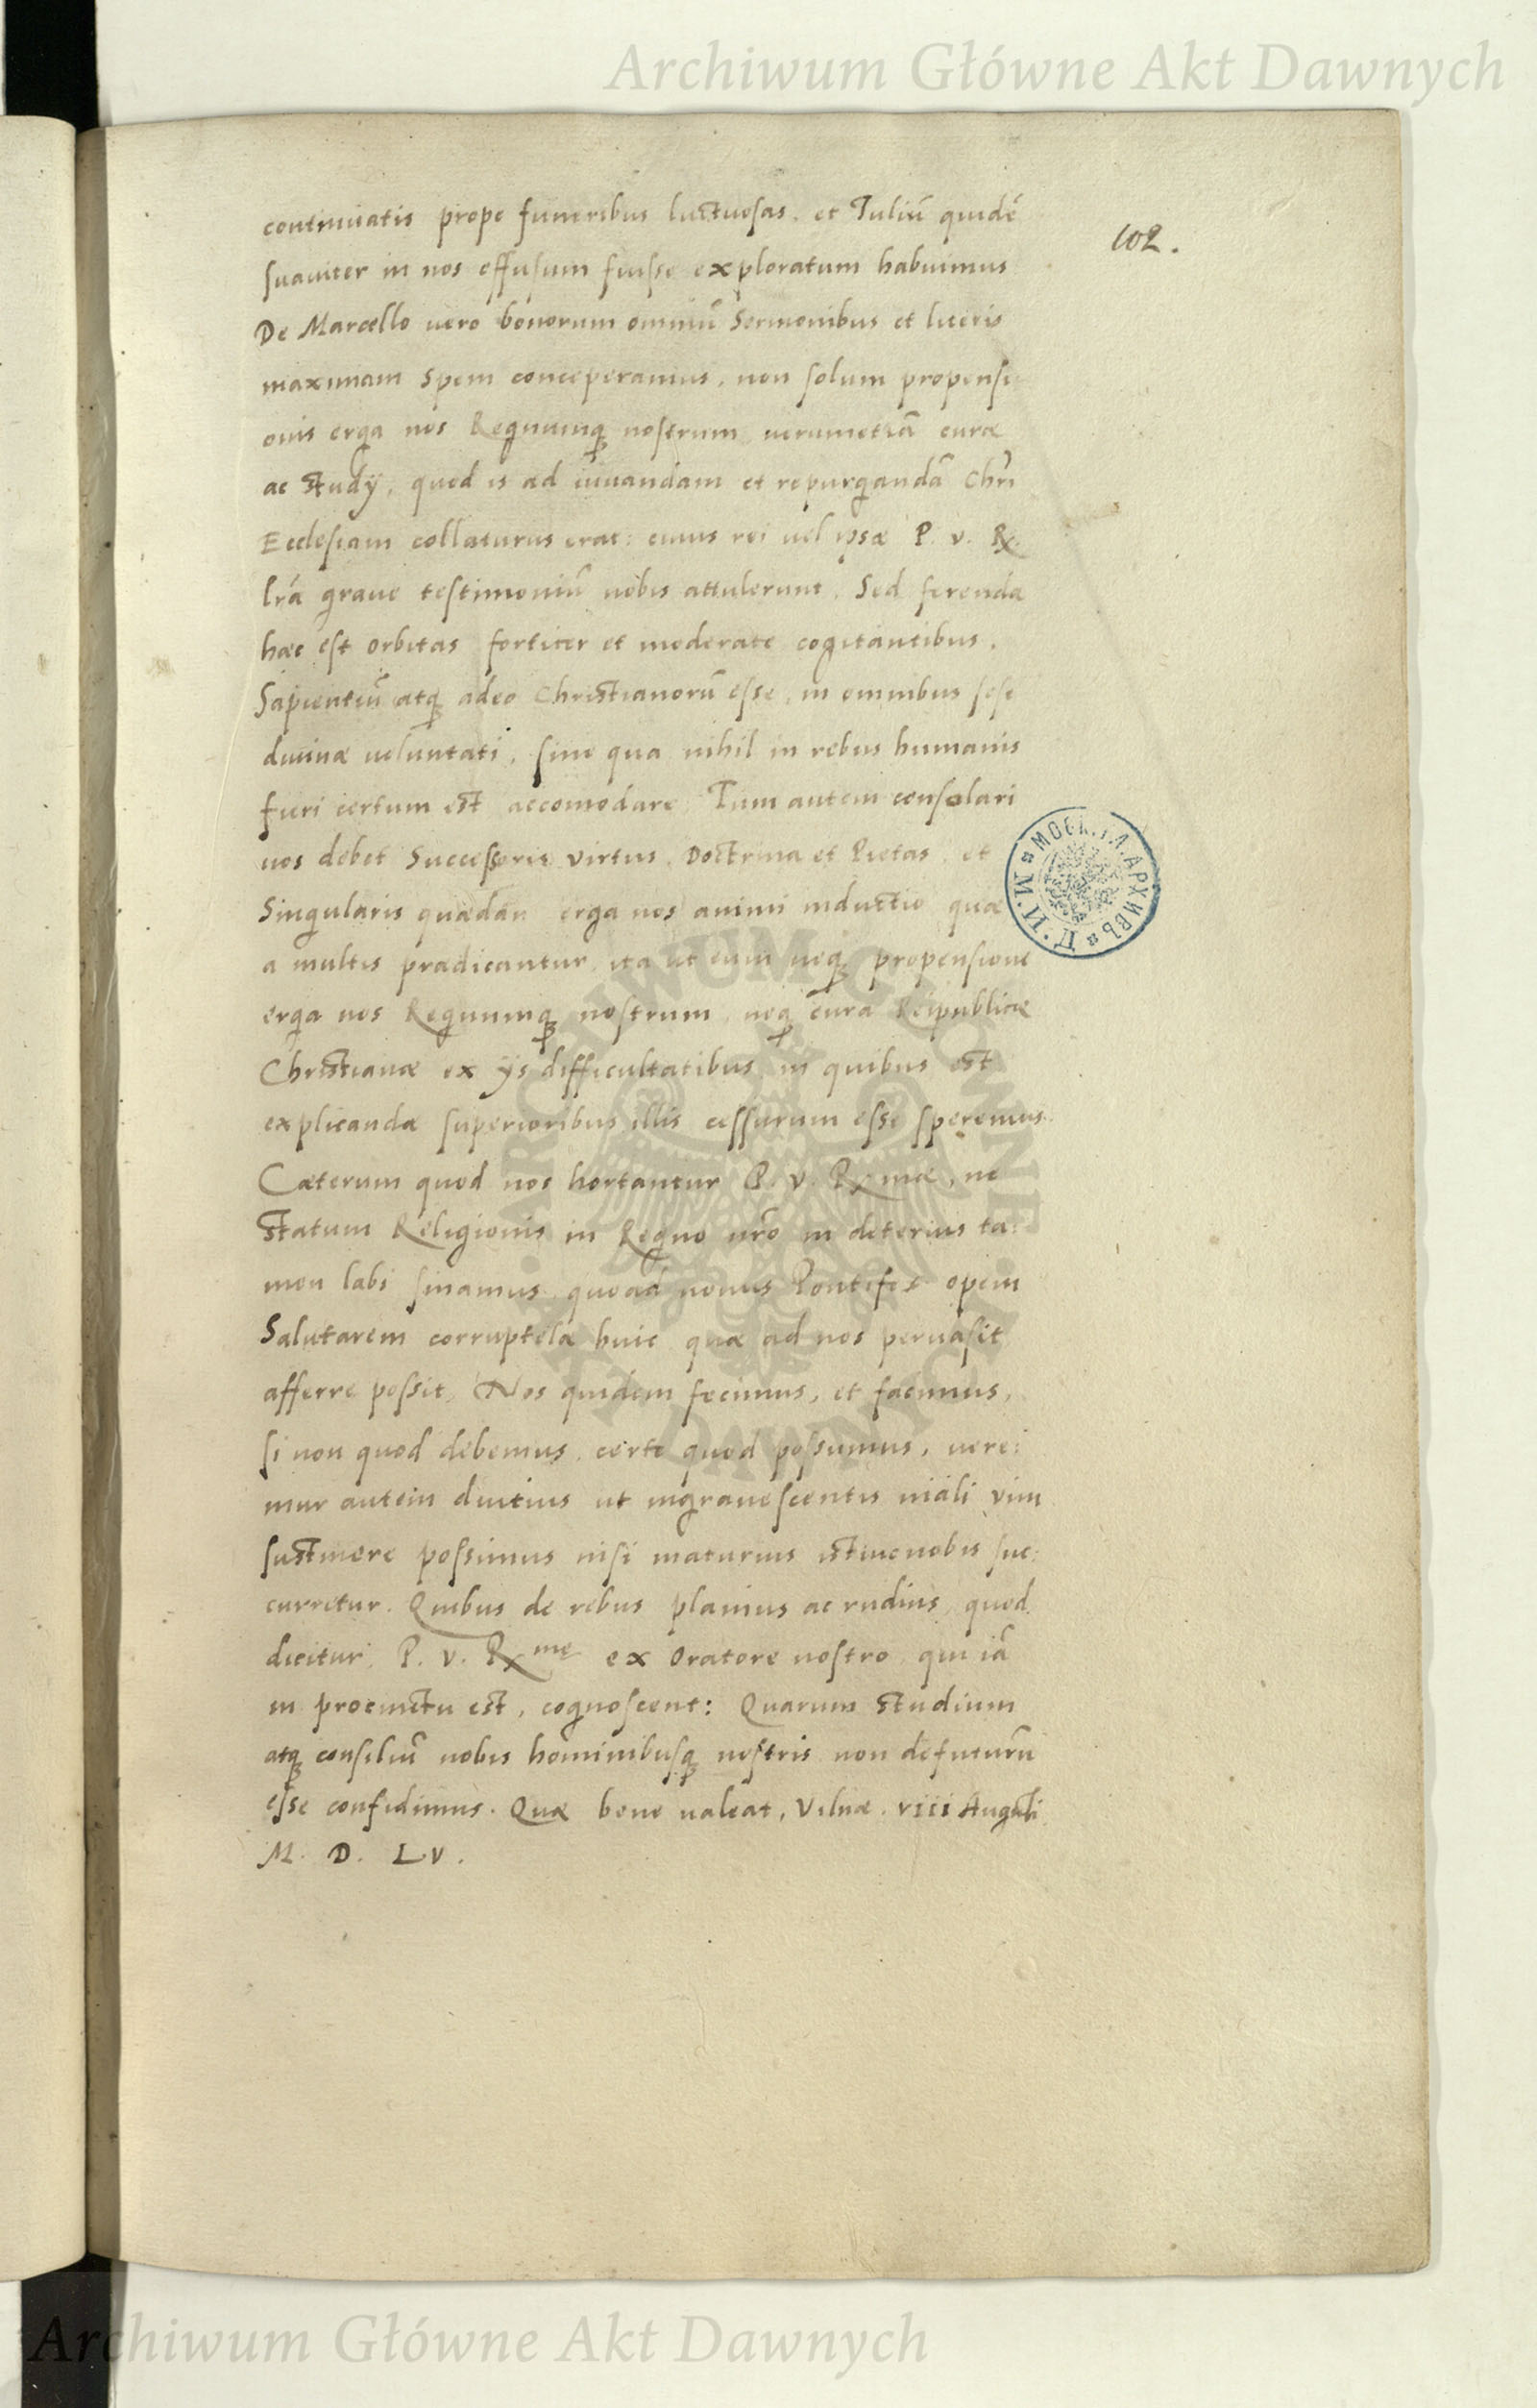 Archiwum Główne Akt Dawnych
continuatis prope funeribus luctuosas. et Iuliũ quidẽ
102.
suauiter in nos effusum fuisse exploratum habuimus
De Marcello uero bonorum omniũ Sermonibus et literis
maximam Spem conceperamus, non solum propensi
onis erga nos Regnumq; nostrum uerumetiã curæ
ac Studÿ, quod is ad iuuandam et repurgandã Chri
Ecclesiam collaturus erat: cuius rei uel ipsæ P. V. R.
lrã graue testimoniũ nobis attulerunt. Sed ferenda
hæc est orbitas fortiter et moderate cogitantibus.
Sapientiũ atq; adeo Christianorũ esse, in omnibus sese
diuinæ uoluntati, sine qua nihil in rebus humanis
fieri certum est accomodare. Tum autem consolari
nos debet Successoris virtus, Doctrina et Pietas, et
Singularis quædam erga nos animi inductio quæ
a multis prædicantur, ita ut eum neq; propensione
erga nos Regnumq; nostrum, neq; cura Reipublicæ
Christianæ ex ÿs difficultatibus in quibus est
explicandæ superioribus illis cessurum esse speremus.
Cæterum quod nos hortantur P. V. Rmæ, ne
Statum Religionis in Regno nrõ in deterius ta:
men labi sinamus quoad nouus Pontifex opem
Salutarem corruptelæ huic quæ ad nos peruasit
afferre possit, Nos quidem fecimus, et facimus,
si non quod debemus, certe quod possumus, uere:
mur autem diutius ut ingrauescentis mali vim
sustinere possimus nisi maturius istinc nobis suc:
curretur. Quibus de rebus planius ac rudius, quod
dicitur, P. V. Rme ex Oratore nostro, qui iã
in procinctu est, cognoscent: Quarum Studium
atq; consiliũ nobis hominibusq; nostris non defuturũ
esse confidimus. Quæ bene ualeat, Vilnæ. viii Augusti
M. D. LV.
МОСК. ГЛ. АРХИВЪ
М. И. Д.
ARCHIWUM GŁÓWNE AKT DAWNYCH
Archiwum Główne Akt Dawnych